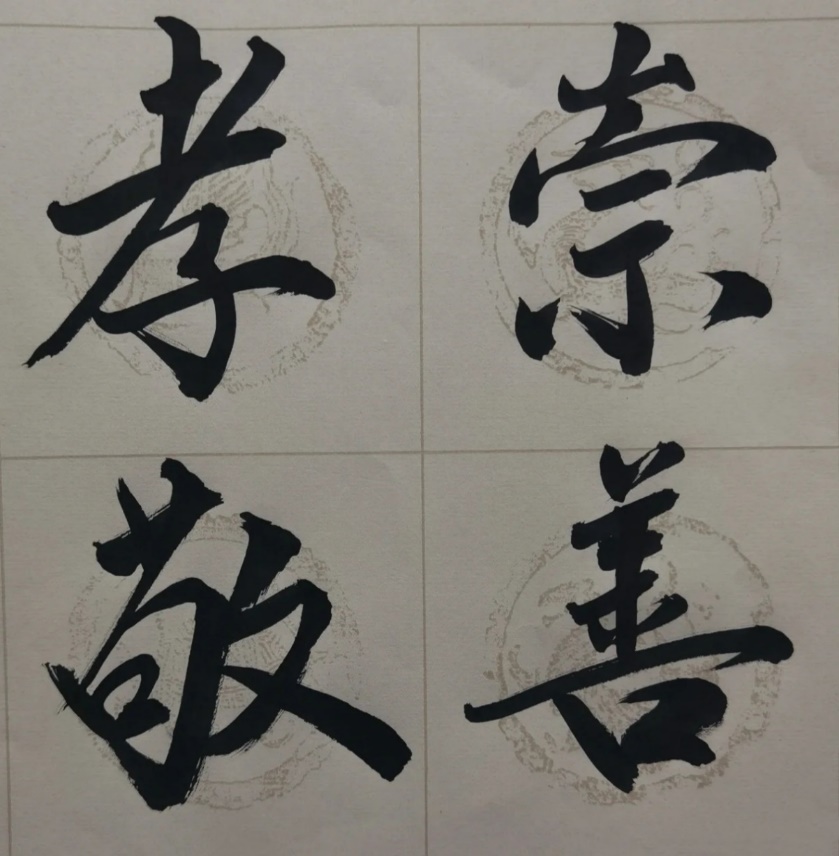 崇善
孝敬